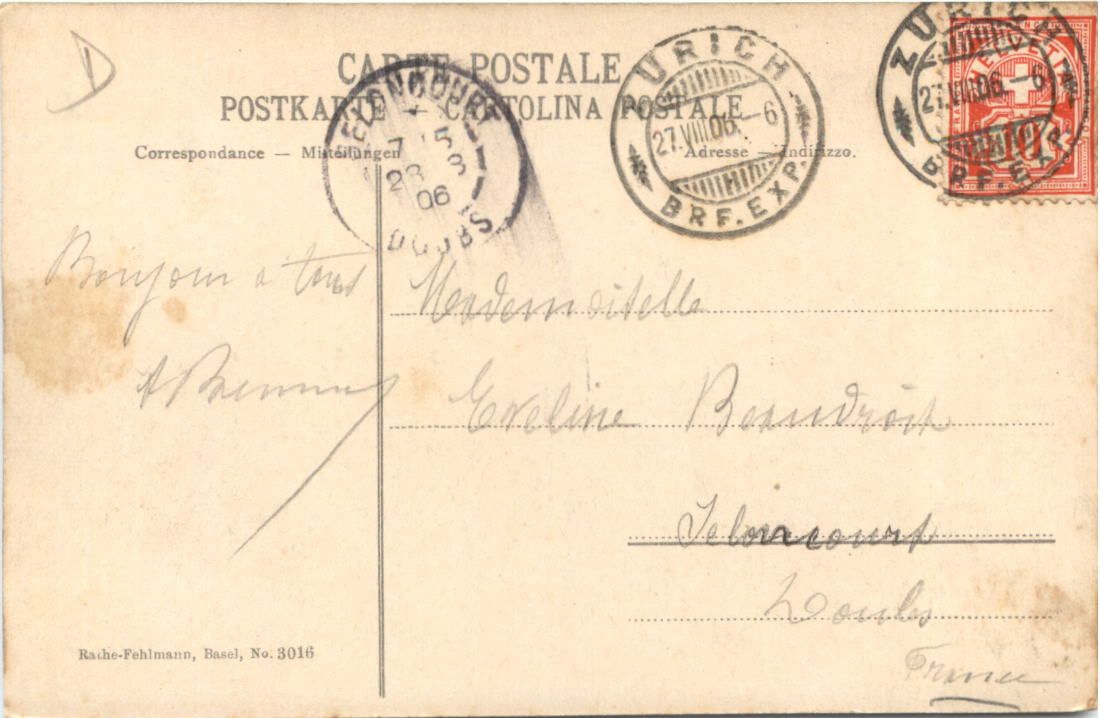 D
CARTE POSTALE
POSTKARTE — CARTOLINA POSTALE
Correspondance — Mitteilungen
Adresse — Indirizzo.
SELONCOURT
7 15
28 8
06
DOUBS
ZURICH
27.VIII.06. – 6
BRF. EXP.
ZURICH
27.VIII.06. – 6
BRF. EXP.
HELVETIA
10
Bonjour a tous
Mademoiselle
Eveline
Seloncourt
Doubs
France
Rathe-Fehlmann, Basel, No. 3016